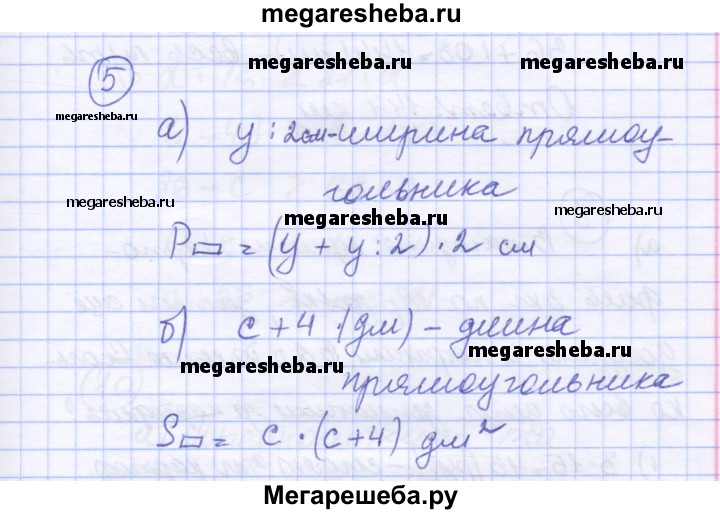 megaresheba.ru
megaresheba.ru megaresheba.ru
5
megaresheba.ru
а) у : 2см - ширина прямоу-
гольника
megaresheba.ru megaresheba.ru
megaresheba.ru
P▭ = (у + у : 2) · 2 см
б) с + 4 (дм) - длина
megaresheba.ru
megaresheba.ru
прямоугольника
S▭ = с · (с + 4) дм²
Мегарешеба.ру